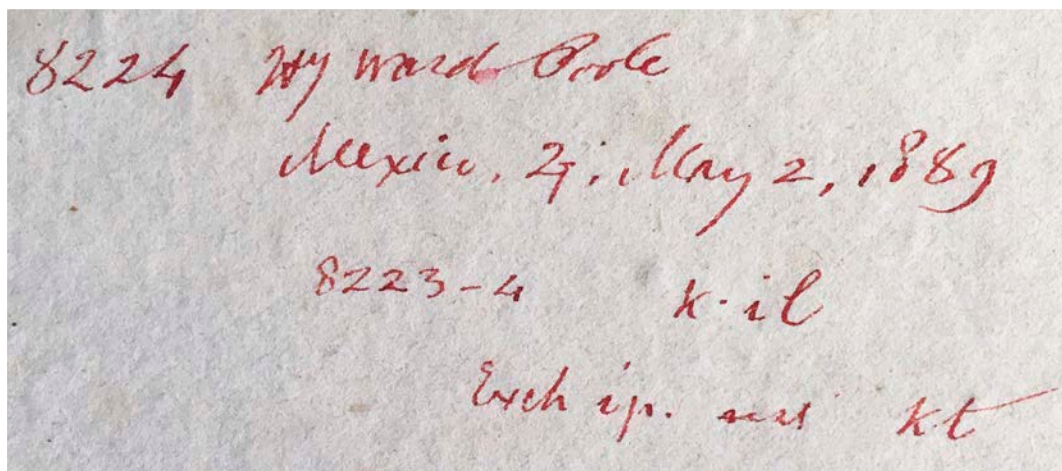 8224 Hy Ward Poole
Mexico, 27, May 2, 1889
8223-4 k·il
Exch kt